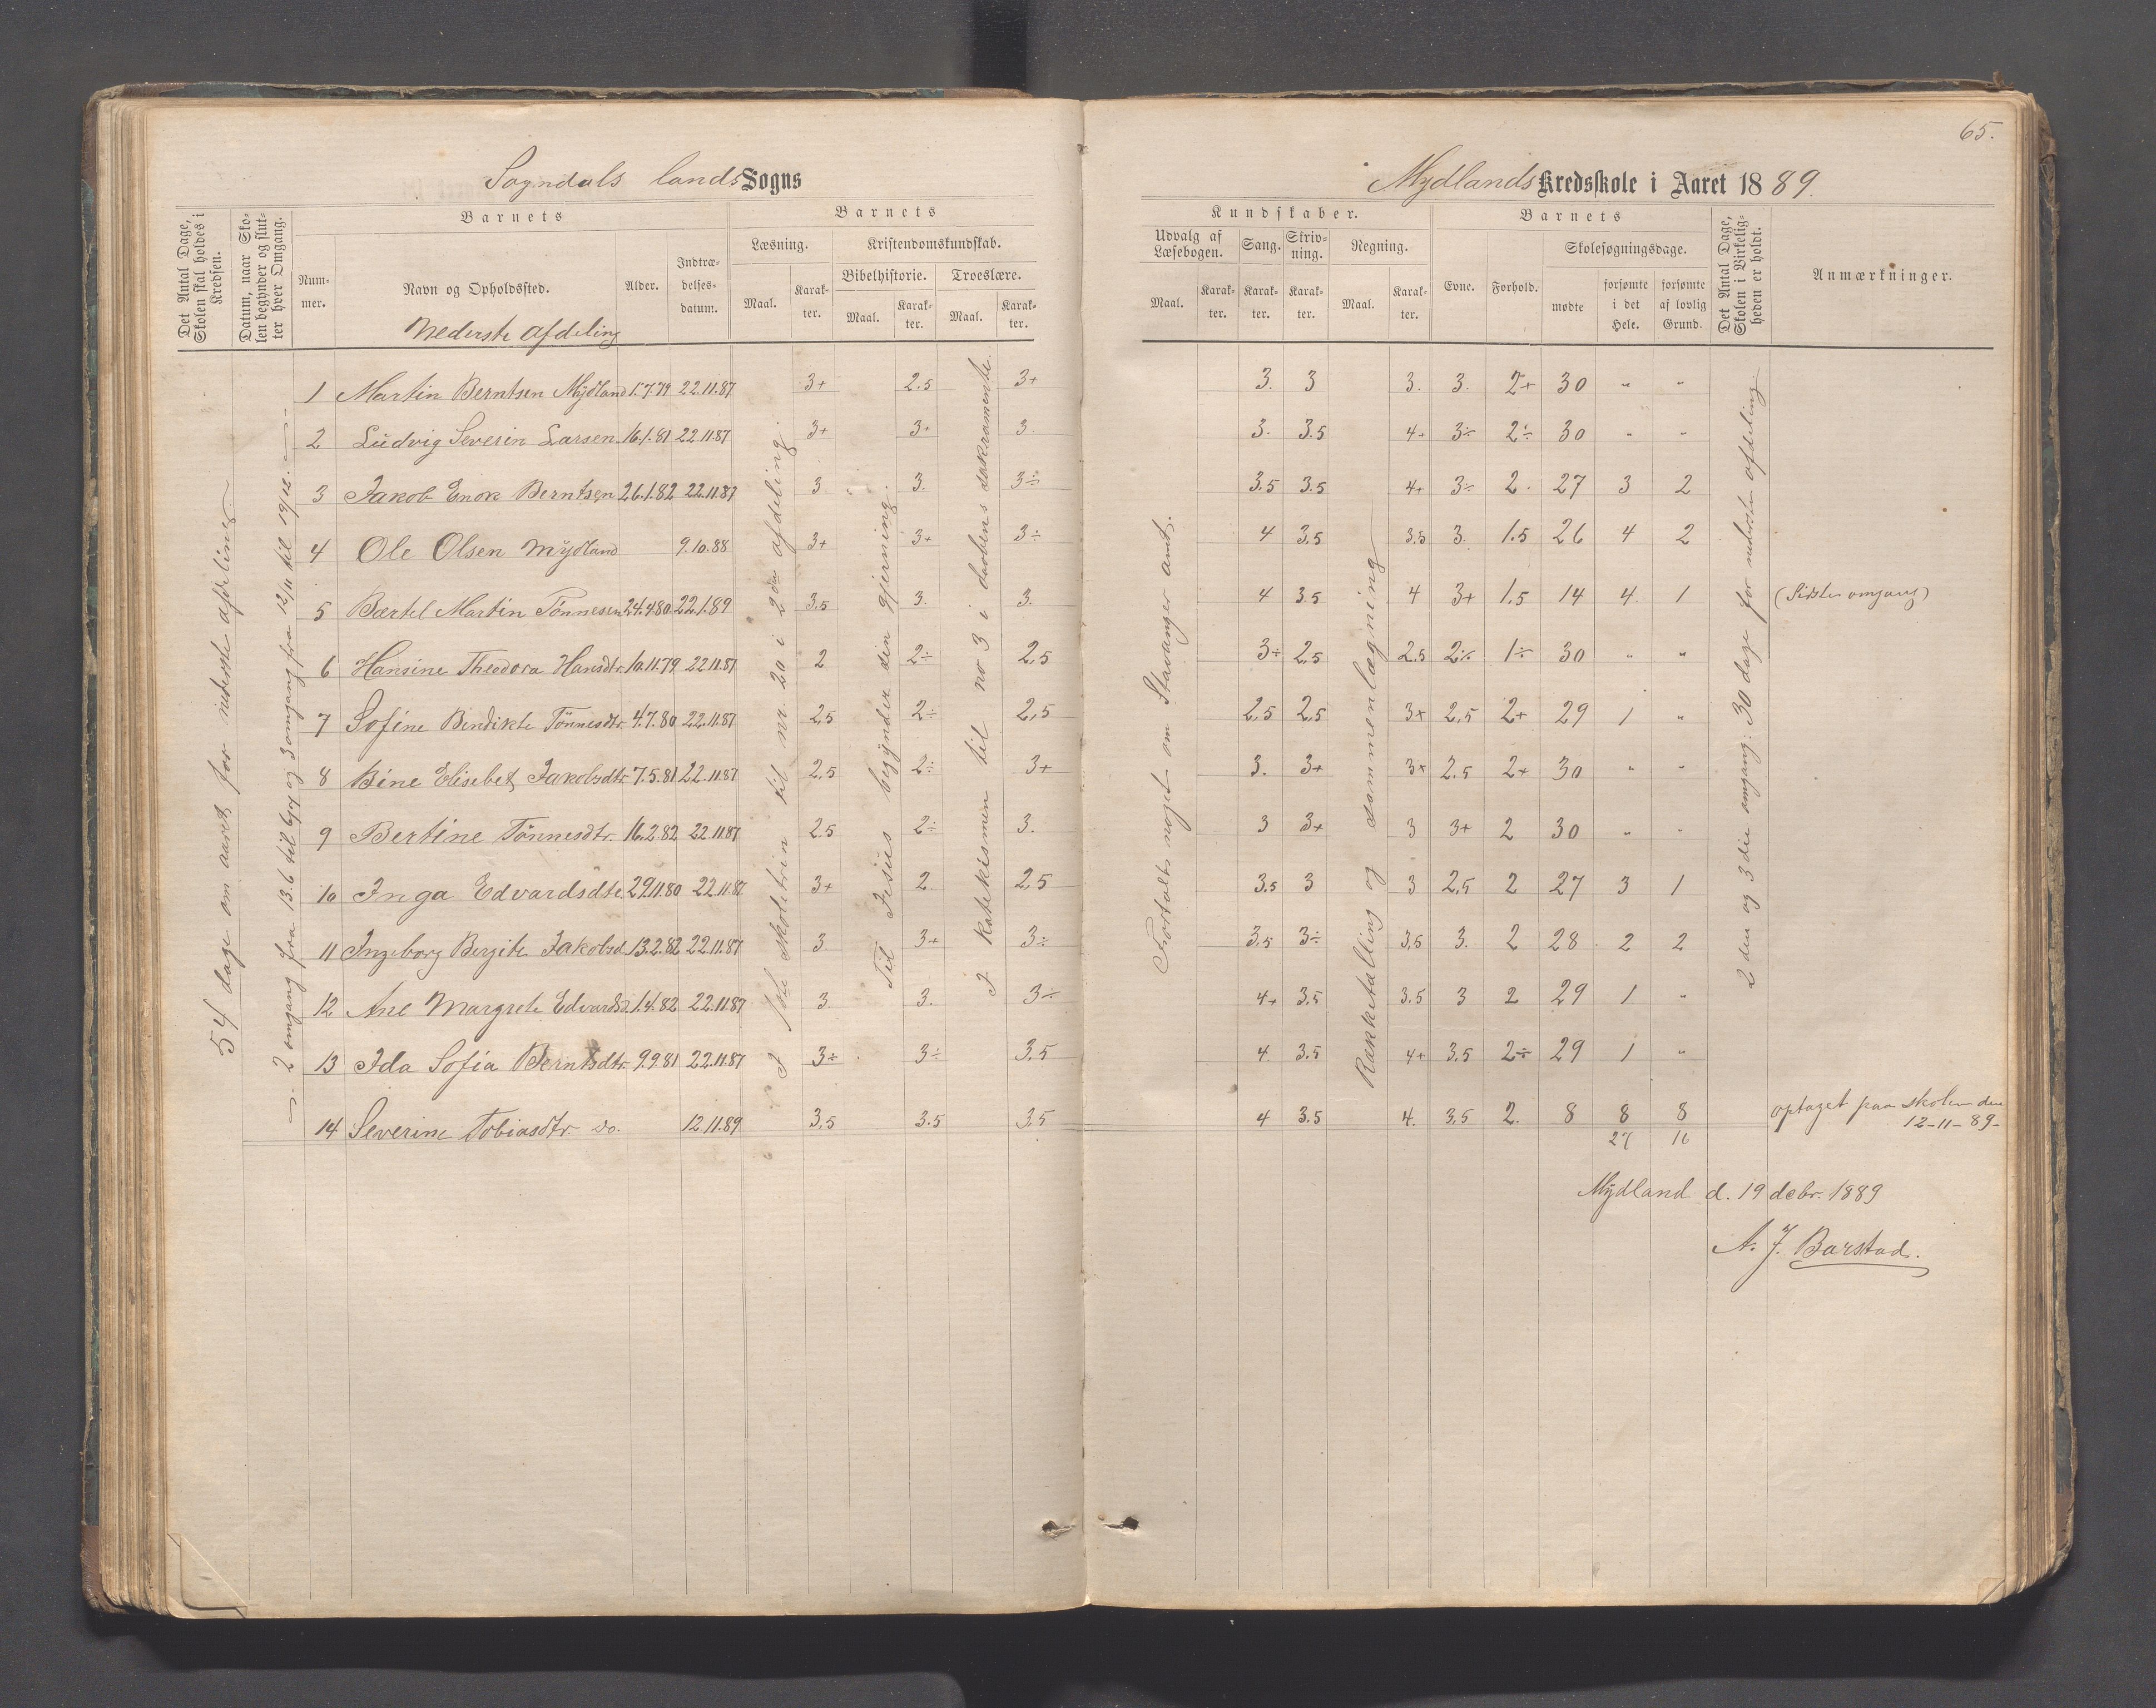 65.
Sogndals lands Sogns
Mydlands Kredsskole i Aaret 1889.
Det Antal Dage, Skolen skal holdes i Kredsen.
Datum, naar Skolen begynder og slutter hver Omgang.
Barnets
Nummer.
Navn og Opholdssted.
Nederste afdeling
Alder.
Indtrædelsesdatum.
Barnets
Læsning.
Maal.
Karakter.
Kristendomskundskab.
Bibelhistorie.
Maal.
Karakter.
Troeslære.
Maal.
Karakter.
Kundskaber.
Udvalg af Læsebogen.
Maal.
Karakter.
Sang.
Karakter.
Skrivning.
Karakter.
Regning.
Maal.
Karakter.
Barnets
Evne.
Forhold.
Skolesøgningsdage.
mødte
forsømte i det Hele.
forsømte af lovlig Grund.
Det Antal Dage, Skolen i Virkeligheden er holdt.
Anmærkninger.
54 dage om aaret for nederste afdeling
2 omgang fra 13.6 til 6/7 og 3 omgang fra 12/11 til 19/12.
I 1ste skoletrin til nr. 20 i 2den afdeling.
Til Jesus begynder sin gjerning.
I katekismen til no 3 i daabens sakramente.
Fortalt noget om Stavanger amt.
Rækketælling og sammenlægning
2den og 3die omgang: 30 dage for nederste afdeling
1 Martin Berntsen Mydland 1.7.79 22.11.87 3+ 2.5 3+ 3. 3 3. 3. 2+ 30 " "
2 Ludvig Severin Larsen 16.1.81 22.11.87 3+ 3+ 3. 3. 3.5 4+ 3÷ 2÷ 30 " "
3 Jakob Enok Berntsen 26.1.82 22.11.87 3 3. 3÷ 3.5 3.5 4+ 3÷ 2. 27 3 2
4 Ole Olsen Mydland 9.10.88 3+ 3+ 3÷ 4 3.5 3.5 3. 1.5 26 4 2
5 Bærtel Martin Tönnesen 24.4.80 22.1.89 3.5 3. 3. 4 3.5 4 3+ 1.5 14 4 1 (Sidste omgang)
6 Hansine Theodora Hansdtr. 10.11.79 22.11.87 2 2÷ 2,5 3÷ 2,5 2.5 2÷ 1÷ 30 " "
7 Sofine Bendikte Tönnesdtr. 4.7.80 22.11.87 2,5 2÷ 2,5 2,5 2,5 3+ 2,5 2+ 29 1 "
8 Bine Elisebet Jakobsdtr. 7.5.81 22.11.87 2,5 2÷ 3+ 3. 3+ 3+ 2.5 2+ 30 " "
9 Bertine Tönnesdtr. 16.2.82 22.11.87 2.5 2÷ 3. 3 3+ 3 3+ 2 30 " "
10 Inga Edvardsdtr. 29.11.80 22.11.87 3+ 2. 2,5 3.5 3 3 2,5 2 27 3 1
11 Ingeborg Bergite Jakobsd. 13.2.82 22.11.87 3. 3+ 3÷ 3.5 3÷ 3,5 3. 2 28 2 2
12 Ane Margrete Edvardsd. 1.4.82 22.11.87 3. 3. 3÷ 4+ 3.5 3.5 3 2 29 1 "
13 Ida Sofia Berntsdtr. 9.9 81 22.11.87 3÷ 3÷ 3,5 4. 3.5 4+ 3.5 2÷ 29 1 "
14 Severine Tobiasdtr. do. 12.11.89 3,5 3.5 3,5 4 3.5 4. 3,5 2. 8 8 8 optaget paa skolen den
12-11-89-
27 16
Mydland d. 19 debr. 1889
A. J. Barstad.